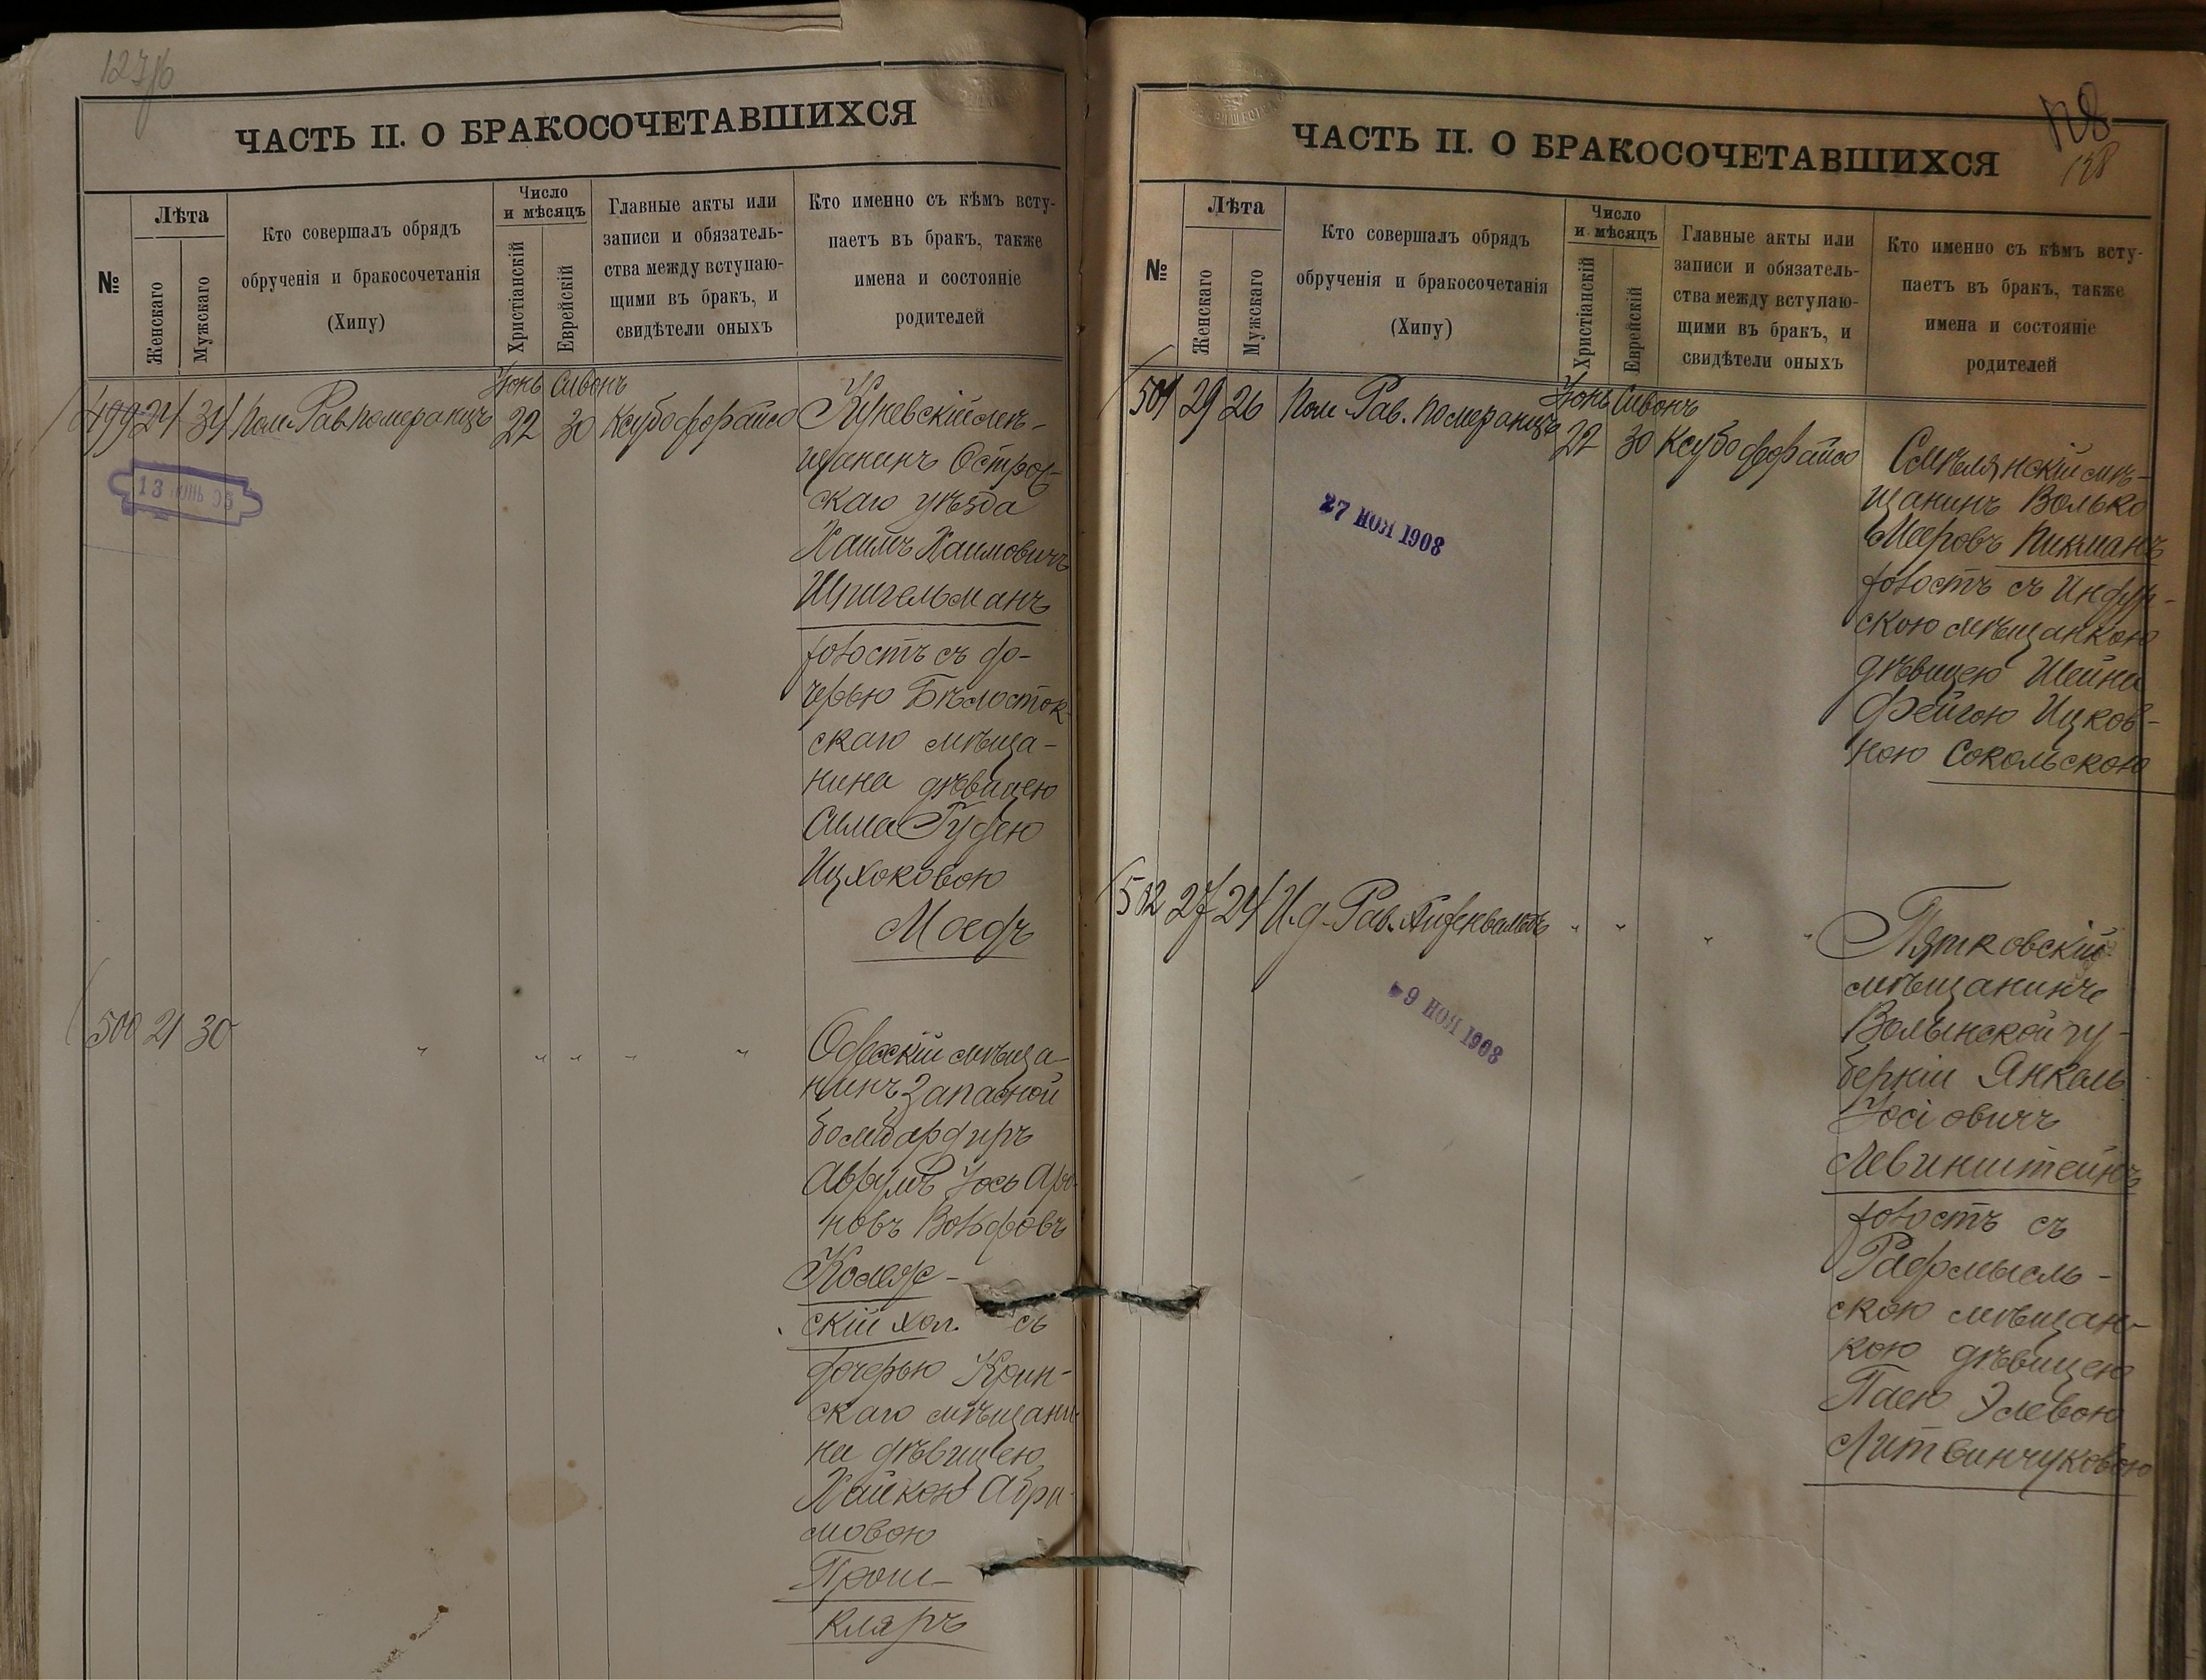 127/б
ЧАСТЬ II. О БРАКОСОЧЕТАВШИХСЯ
№
Лѣта
Женскаго
Мужскаго
Кто совершалъ обрядъ
обрученія и бракосочетанія
(Хипу)
Число
и мѣсяцъ
Христіанскій
Еврейскій
Главные акты или
записи и обязатель-
ства между вступаю-
щими въ бракъ, и
свидѣтели оныхъ
Кто именно съ кѣмъ всту-
паетъ въ бракъ, также
имена и состояніе
родителей
Іюнь Сивонъ
499 24 34 Пом. Рав. Померанцъ 22 30 Ксубо
Куневскій мѣ-
щанинъ Острог-
скаго уѣзда
Хаимъ Хаимовичъ
Шпигельманъ
холостъ съ до-
черью Бѣлосток-
скаго мѣща-
нина дѣвицею
Сима
Ицхоковою
500 21 30 " " " " "
Одесскій мѣща-
нинъ Запасной
бомбардиръ
Аврумъ Іось Аро-
новъ Вольфовъ
Коляр-
скій хол. съ
дочерью Крин-
скаго мѣщани-
на дѣвицею
Хайкою Абра-
мовою
Прош-
кляръ
128
128
ЧАСТЬ II. О БРАКОСОЧЕТАВШИХСЯ
№
Лѣта
Женскаго
Мужскаго
Кто совершалъ обрядъ
обрученія и бракосочетанія
(Хипу)
Число
и мѣсяцъ
Христіанскій
Еврейскій
Главные акты или
записи и обязатель-
ства между вступаю-
щими въ бракъ, и
свидѣтели оныхъ
Кто именно съ кѣмъ всту-
паетъ въ бракъ, также
имена и состояніе
родителей
Іюнь Сивонъ
501 29 26 Пом. Рав. Померанцъ 22 30 Ксубо
27 НОЯ 1908
Смѣлянскій мѣ-
щанинъ Волько
Мееровъ Пикманъ
холостъ съ Индур-
скою мѣщанкою
дѣвицею Шейна
Фейгою Ицков-
ною Сокольскою
502 27 24 И. д. Рав. " " " "
9 НОЯ 1908
Пятковскій
мѣщанинъ
Волынской гу-
берніи Янкель
Іосіовичъ
Левинштейнъ
холостъ съ
Радомысль-
скою мѣщан-
кою дѣвицею
Паею Элевою
Литвинчуковою